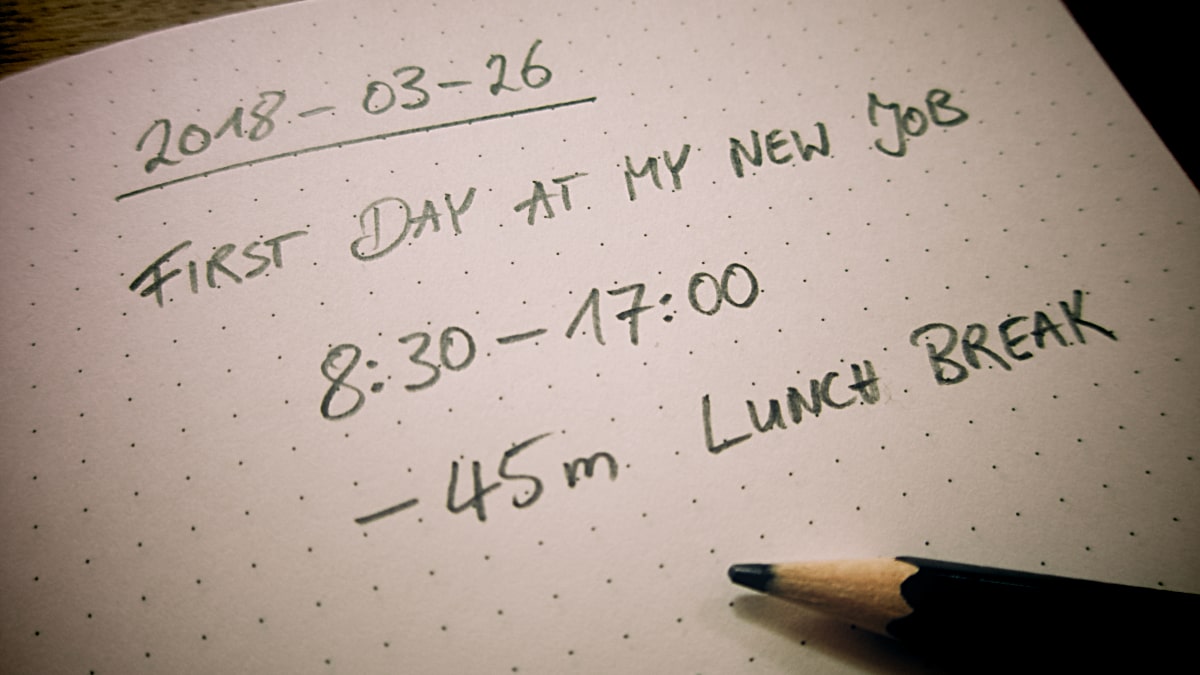 2018-03-26
FIRST DAY AT MY NEW JOB
8:30-17:00
-45m LUNCH BREAK